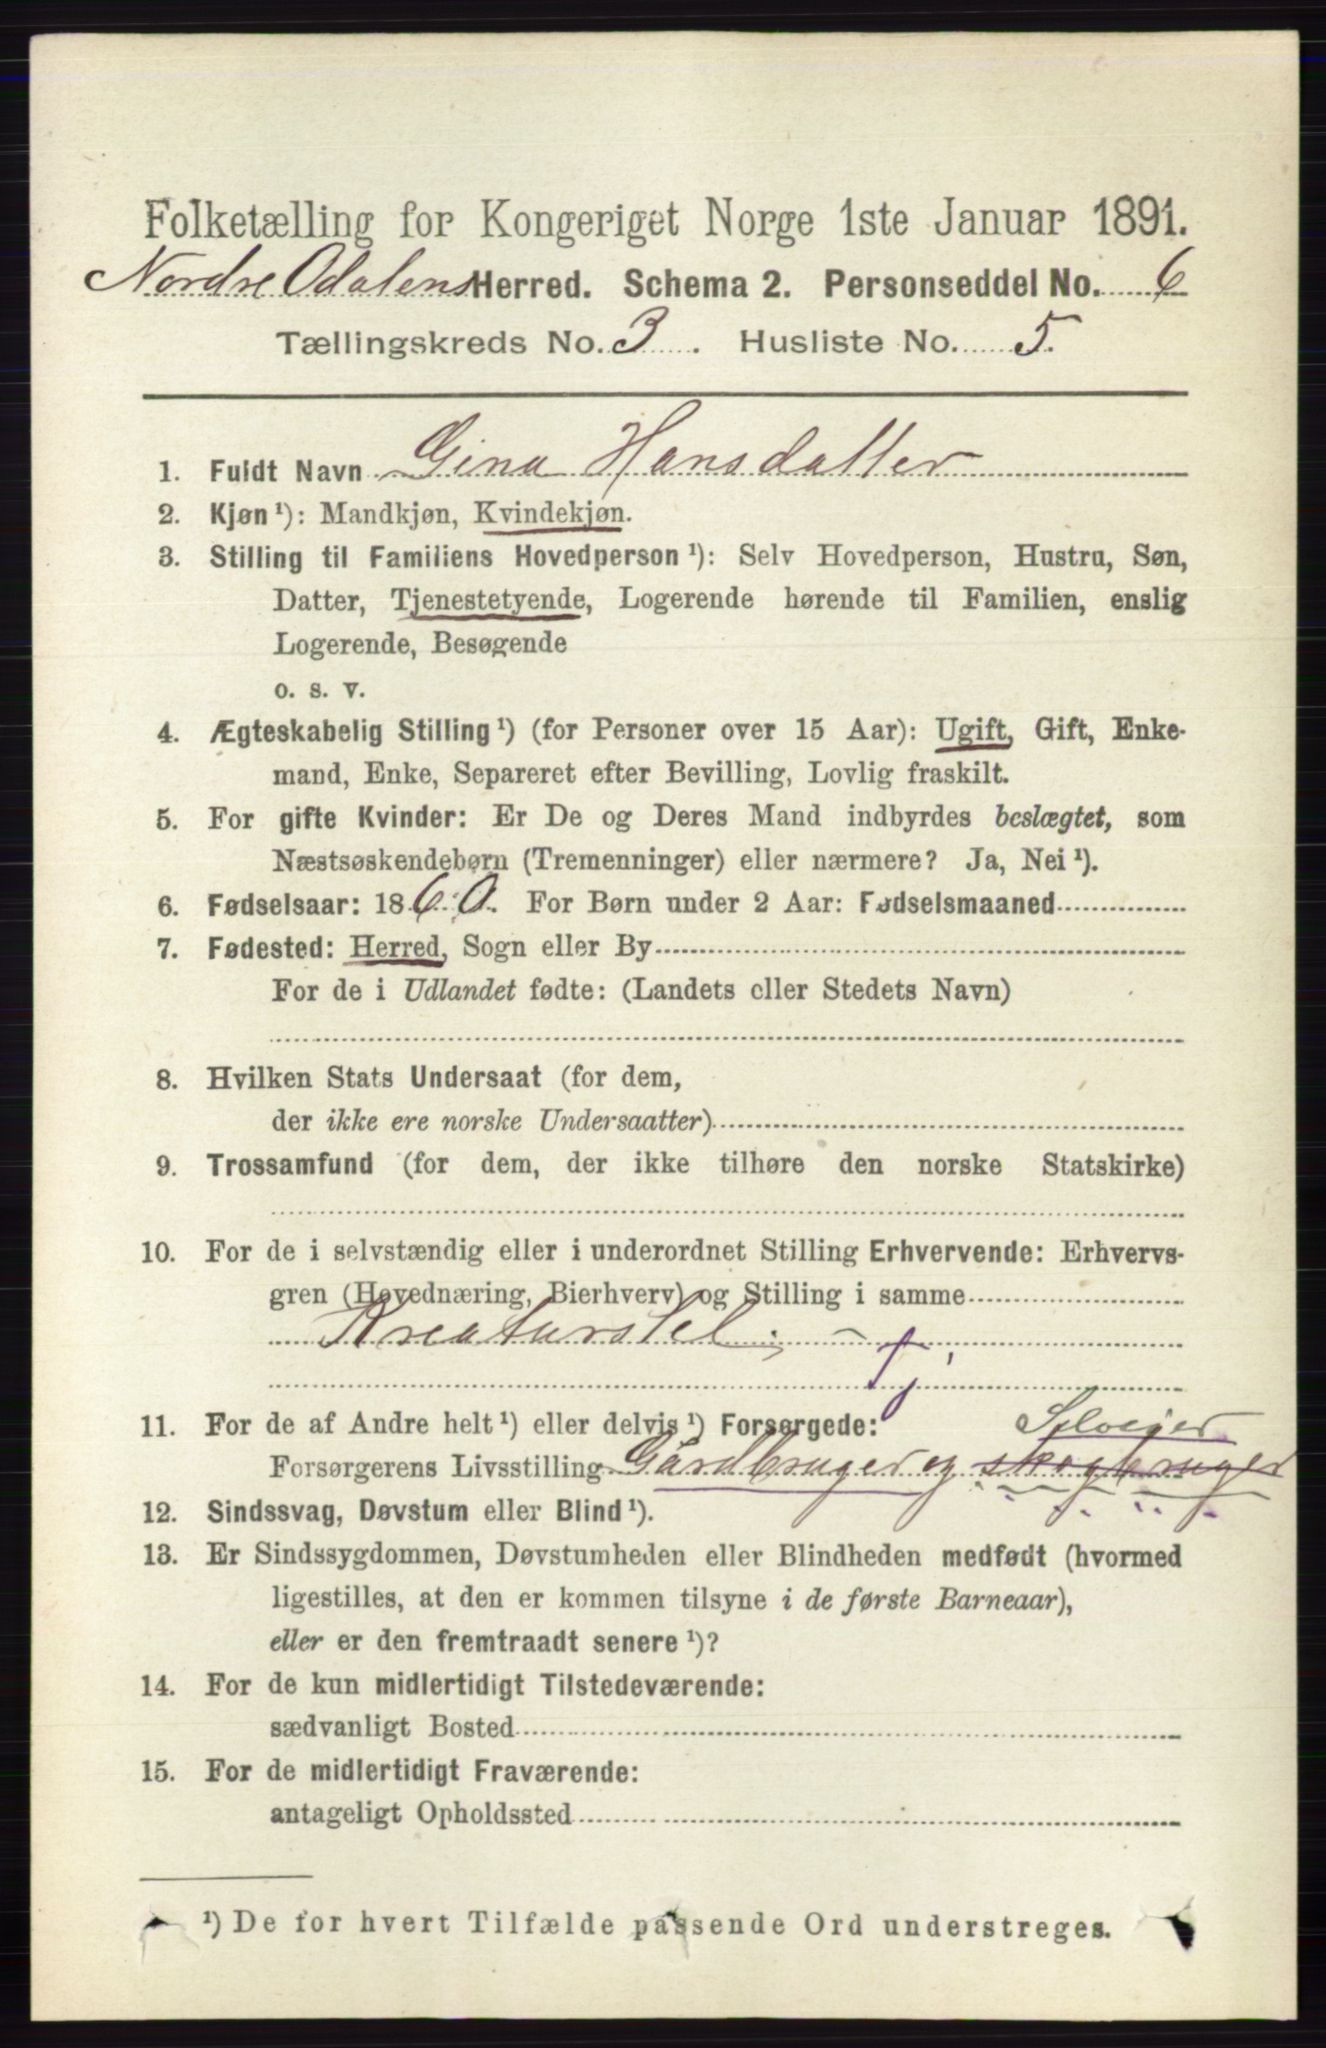 Folketælling for Kongeriget Norge 1ste Januar 1891.
Nordre Odalens Herred. Schema 2. Personseddel No. 6
Tællingskreds No. 3. Husliste No. 5.
1. Fuldt Navn Gina Hansdatter
2. Kjøn¹): Mandkjøn, Kvindekjøn.
3. Stilling til Familiens Hovedperson¹): Selv Hovedperson, Hustru, Søn,
Datter, Tjenestetyende, Logerende hørende til Familien, enslig
Logerende, Besøgende
o. s. v.
4. Ægteskabelig Stilling¹) (for Personer over 15 Aar): Ugift, Gift, Enke-
mand, Enke, Separeret efter Bevilling, Lovlig fraskilt.
5. For gifte Kvinder: Er De og Deres Mand indbyrdes beslægtet, som
Næstsøskendebørn (Tremenninger) eller nærmere? Ja, Nei¹).
6. Fødselsaar: 1860. For Børn under 2 Aar: Fødselsmaaned
7. Fødested: Herred, Sogn eller By
For de i Udlandet fødte: (Landets eller Stedets Navn)
8. Hvilken Stats Undersaat (for dem,
der ikke ere norske Undersaatter)
9. Trossamfund (for dem, der ikke tilhøre den norske Statskirke)
10. For de i selvstændig eller i underordnet Stilling Erhvervende: Erhvervs-
gren (Hovednæring, Bierhverv) og Stilling i samme
Kreaturstel. -
Tj
11. For de af Andre helt¹) eller delvis¹) Forsørgede: Selveier
Forsørgerens Livsstilling Gårdbruger og skogbruger
12. Sindssvag, Døvstum eller Blind¹).
13. Er Sindssygdommen, Døvstumheden eller Blindheden medfødt (hvormed
ligestilles, at den er kommen tilsyne i de første Barneaar),
eller er den fremtraadt senere¹)?
14. For de kun midlertidigt Tilstedeværende:
sædvanligt Bosted
15. For de midlertidigt Fraværende:
antageligt Opholdssted
¹) De for hvert Tilfælde passende Ord understreges.